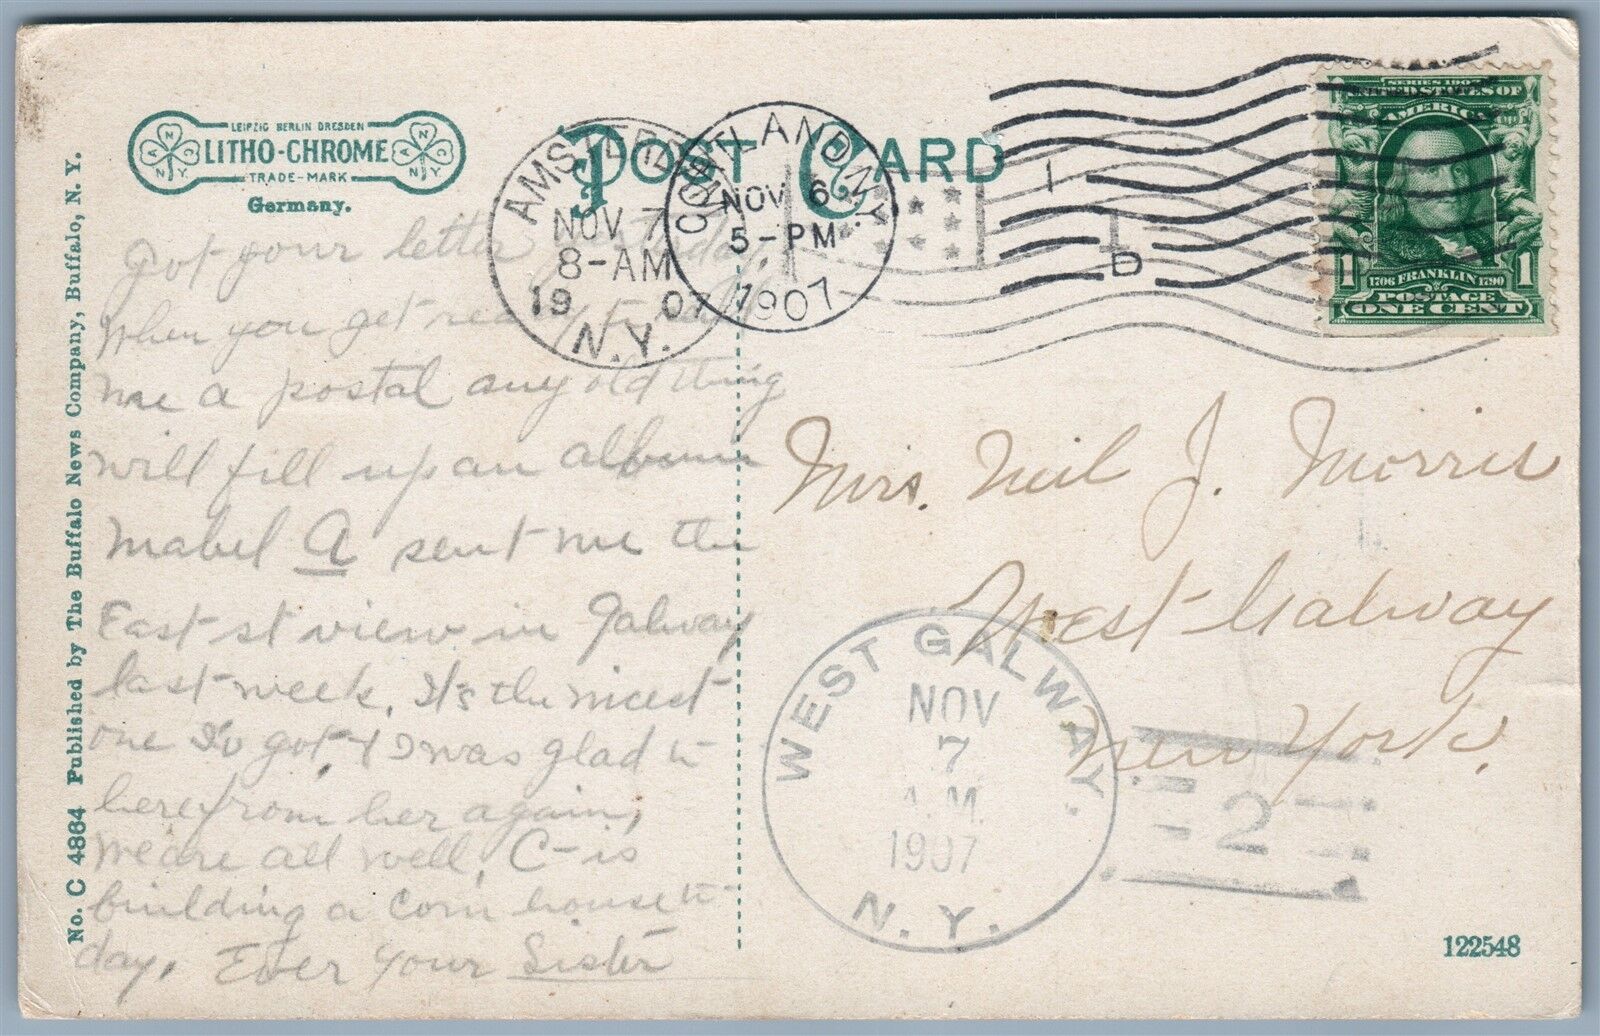 No. C 4864 Published by The Buffalo News Company, Buffalo, N. Y.
LEIPZIG BERLIN DRESDEN
LITHO-CHROME
TRADE-MARK
Germany.
N A C N.Y.
N A C N.Y.
POST CARD
AMSTERDAM
NOV 7
8-AM
19 07
N.Y.
CORTLAND N.Y.
NOV 6
5-PM
1907
1
D
SERIES 1902
UNITED STATES OF
AMERICA
FRANKLIN
1706 1790
1 1
POSTAGE
ONE CENT
Got your letter yesterday,
When you get ready to
me a postal any old thing
will fill up an album
Mabel A sent me the
East st view in Galway
last week. It's the nicest
one Iv got & I was glad to
here from her again,
We are all well, C- is
building a corn house to
day, Ever Your Sister
Mrs. Neil J. Morris
West Galway
New York.
WEST GALWAY.
NOV
7
A.M.
1907
N. Y.
2
122548